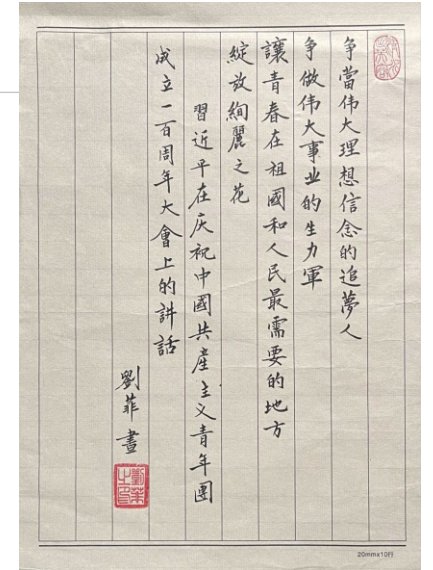 争當伟大理想信念的追夢人
争做伟大事业的生力軍
讓青春在祖國和人民最需要的地方
綻放絢麗之花
習近平在庆祝中國共産主义青年團
成立一百周年大會上的講話
劉菲 書
20mmx10行